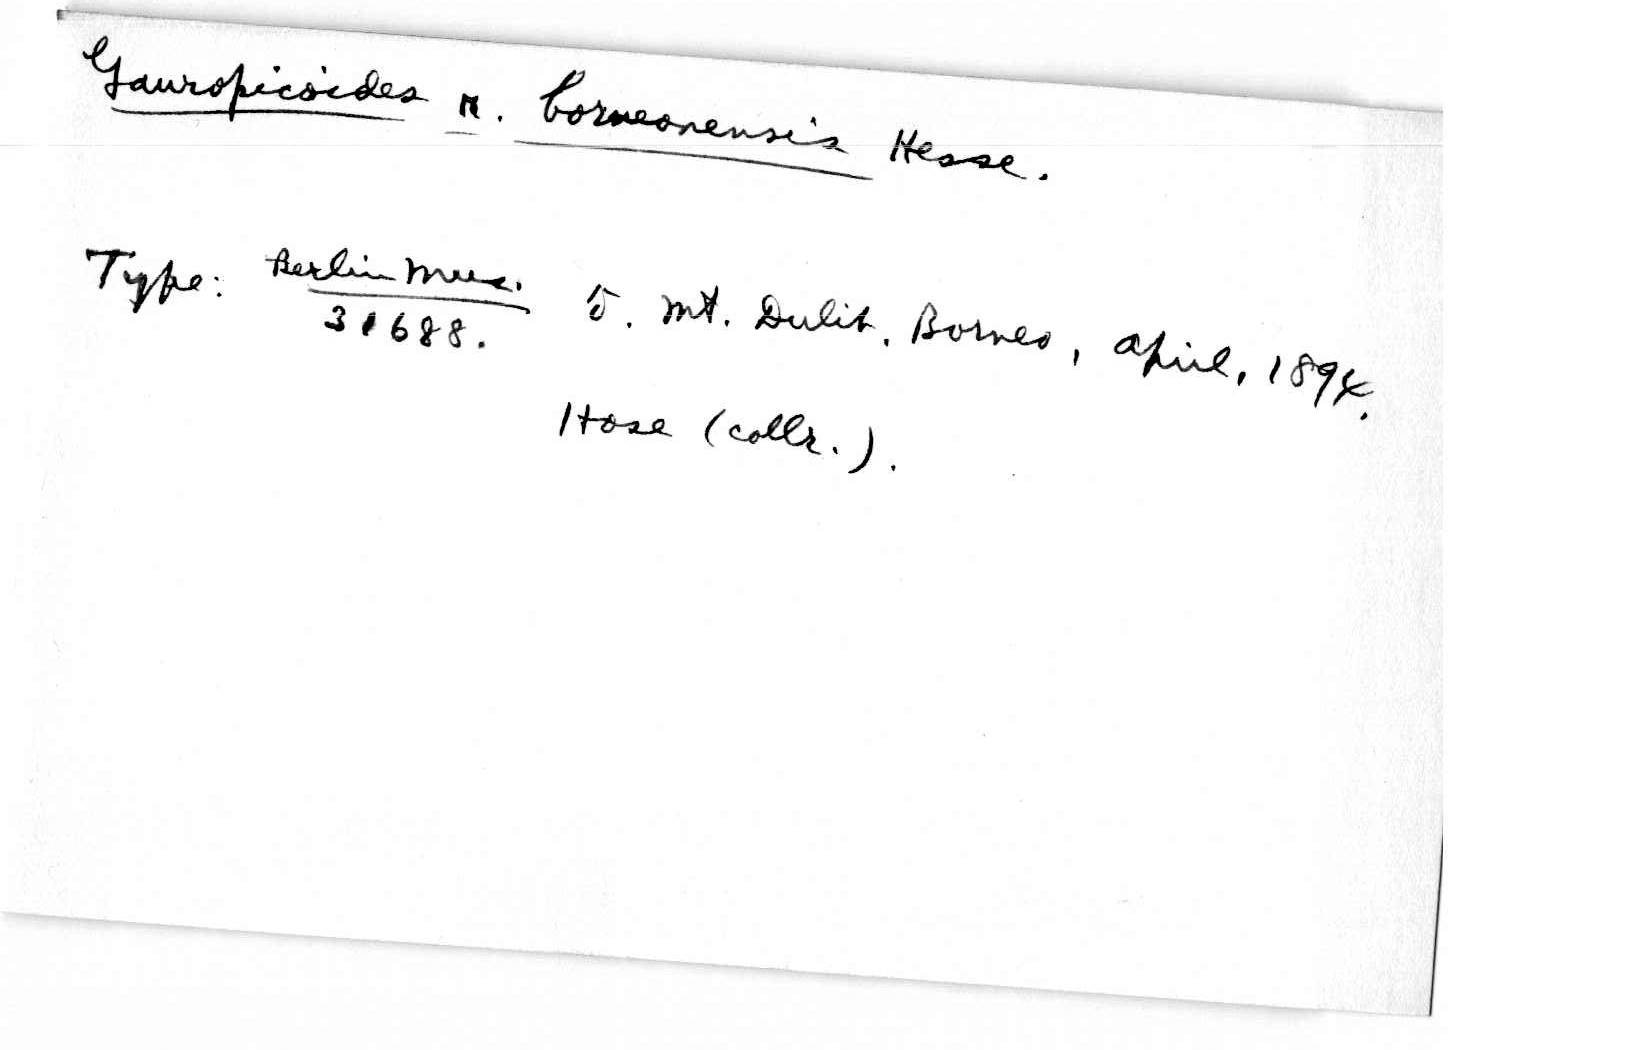 Gauropicoides r. borneonensis Hesse.
Type: Berlin Mus. 5. Mt. Dulit, Borneo, April, 1894.
31688.
Hose (collr.).